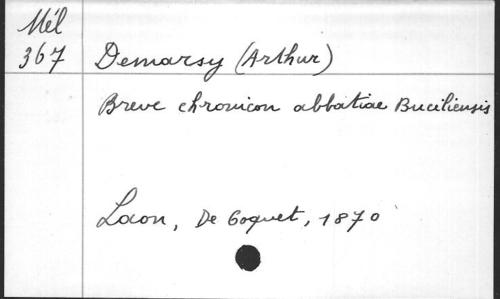 Mél
367 Demarsy (Arthur)
Breve chronicon abbatiae Buciliensis
Laon, De Coquet, 1870